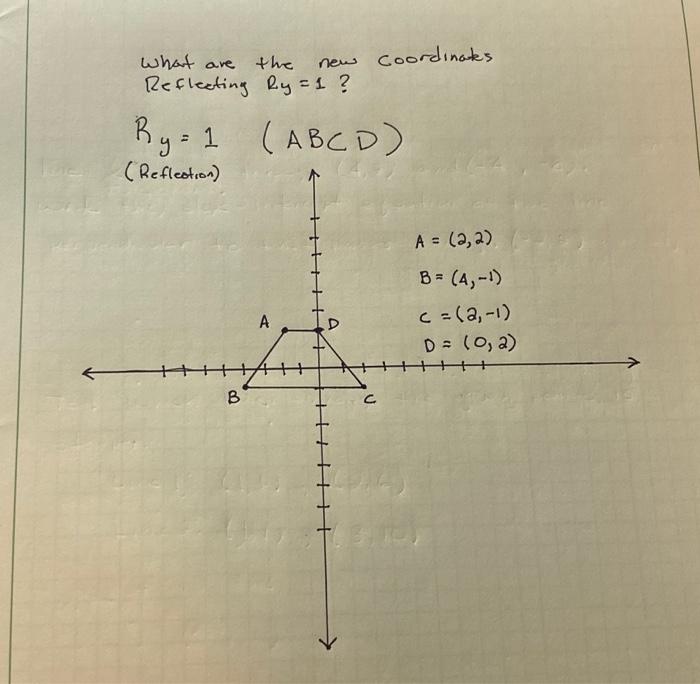 What are the new coordinates
Reflecting Ry=1 ?
Ry=1 (ABCD)
(Reflection)
A = (2,2)
B = (4,-1)
C = (2,-1)
D = (0,2)
A
D
B
C